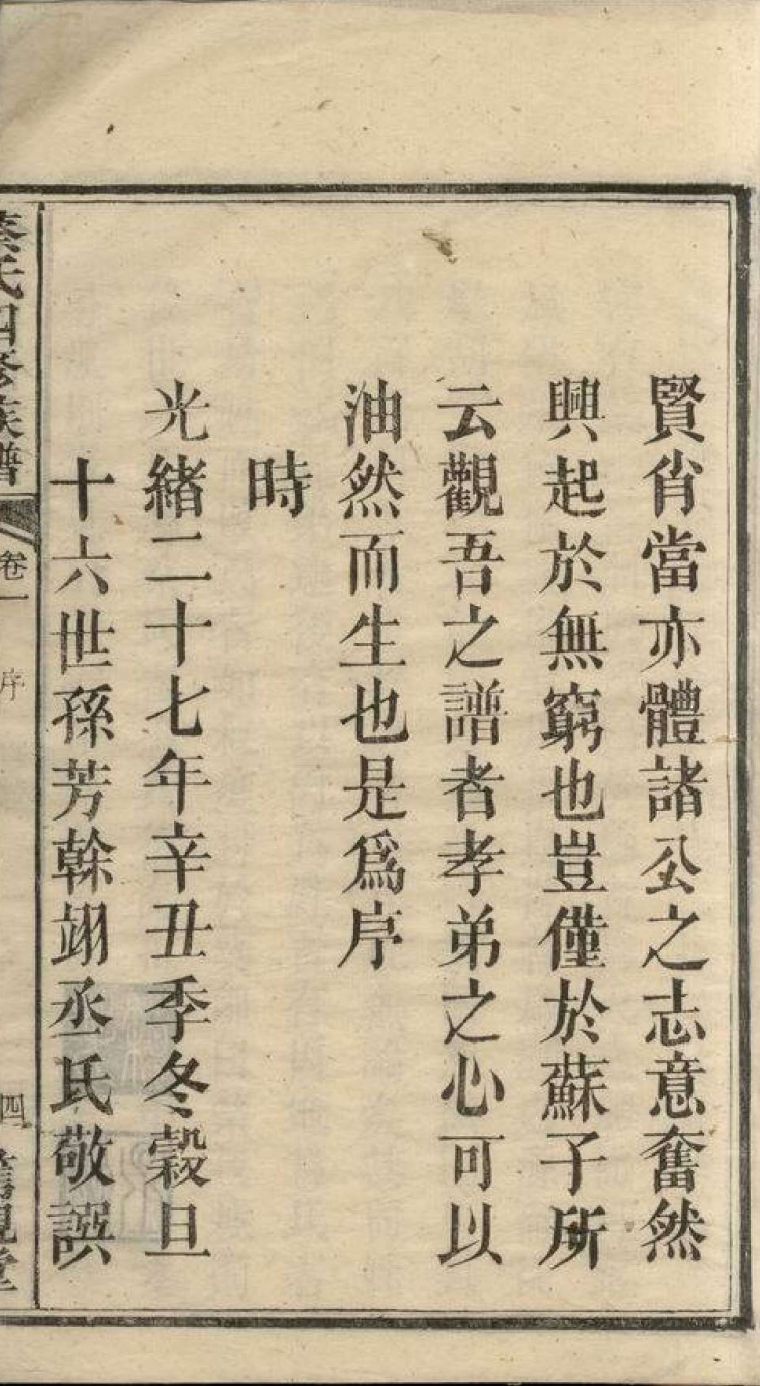 賢肖當亦體諸公之志意奮然
興起於無窮也豈僅於蘇子所
云觀吾之譜者孝弟之心可以
油然而生也是爲序
時
光緒二十七年辛丑季冬穀旦
十六世孫芳榦翊丞氏敬譔
氏四修族譜
卷一
序
四